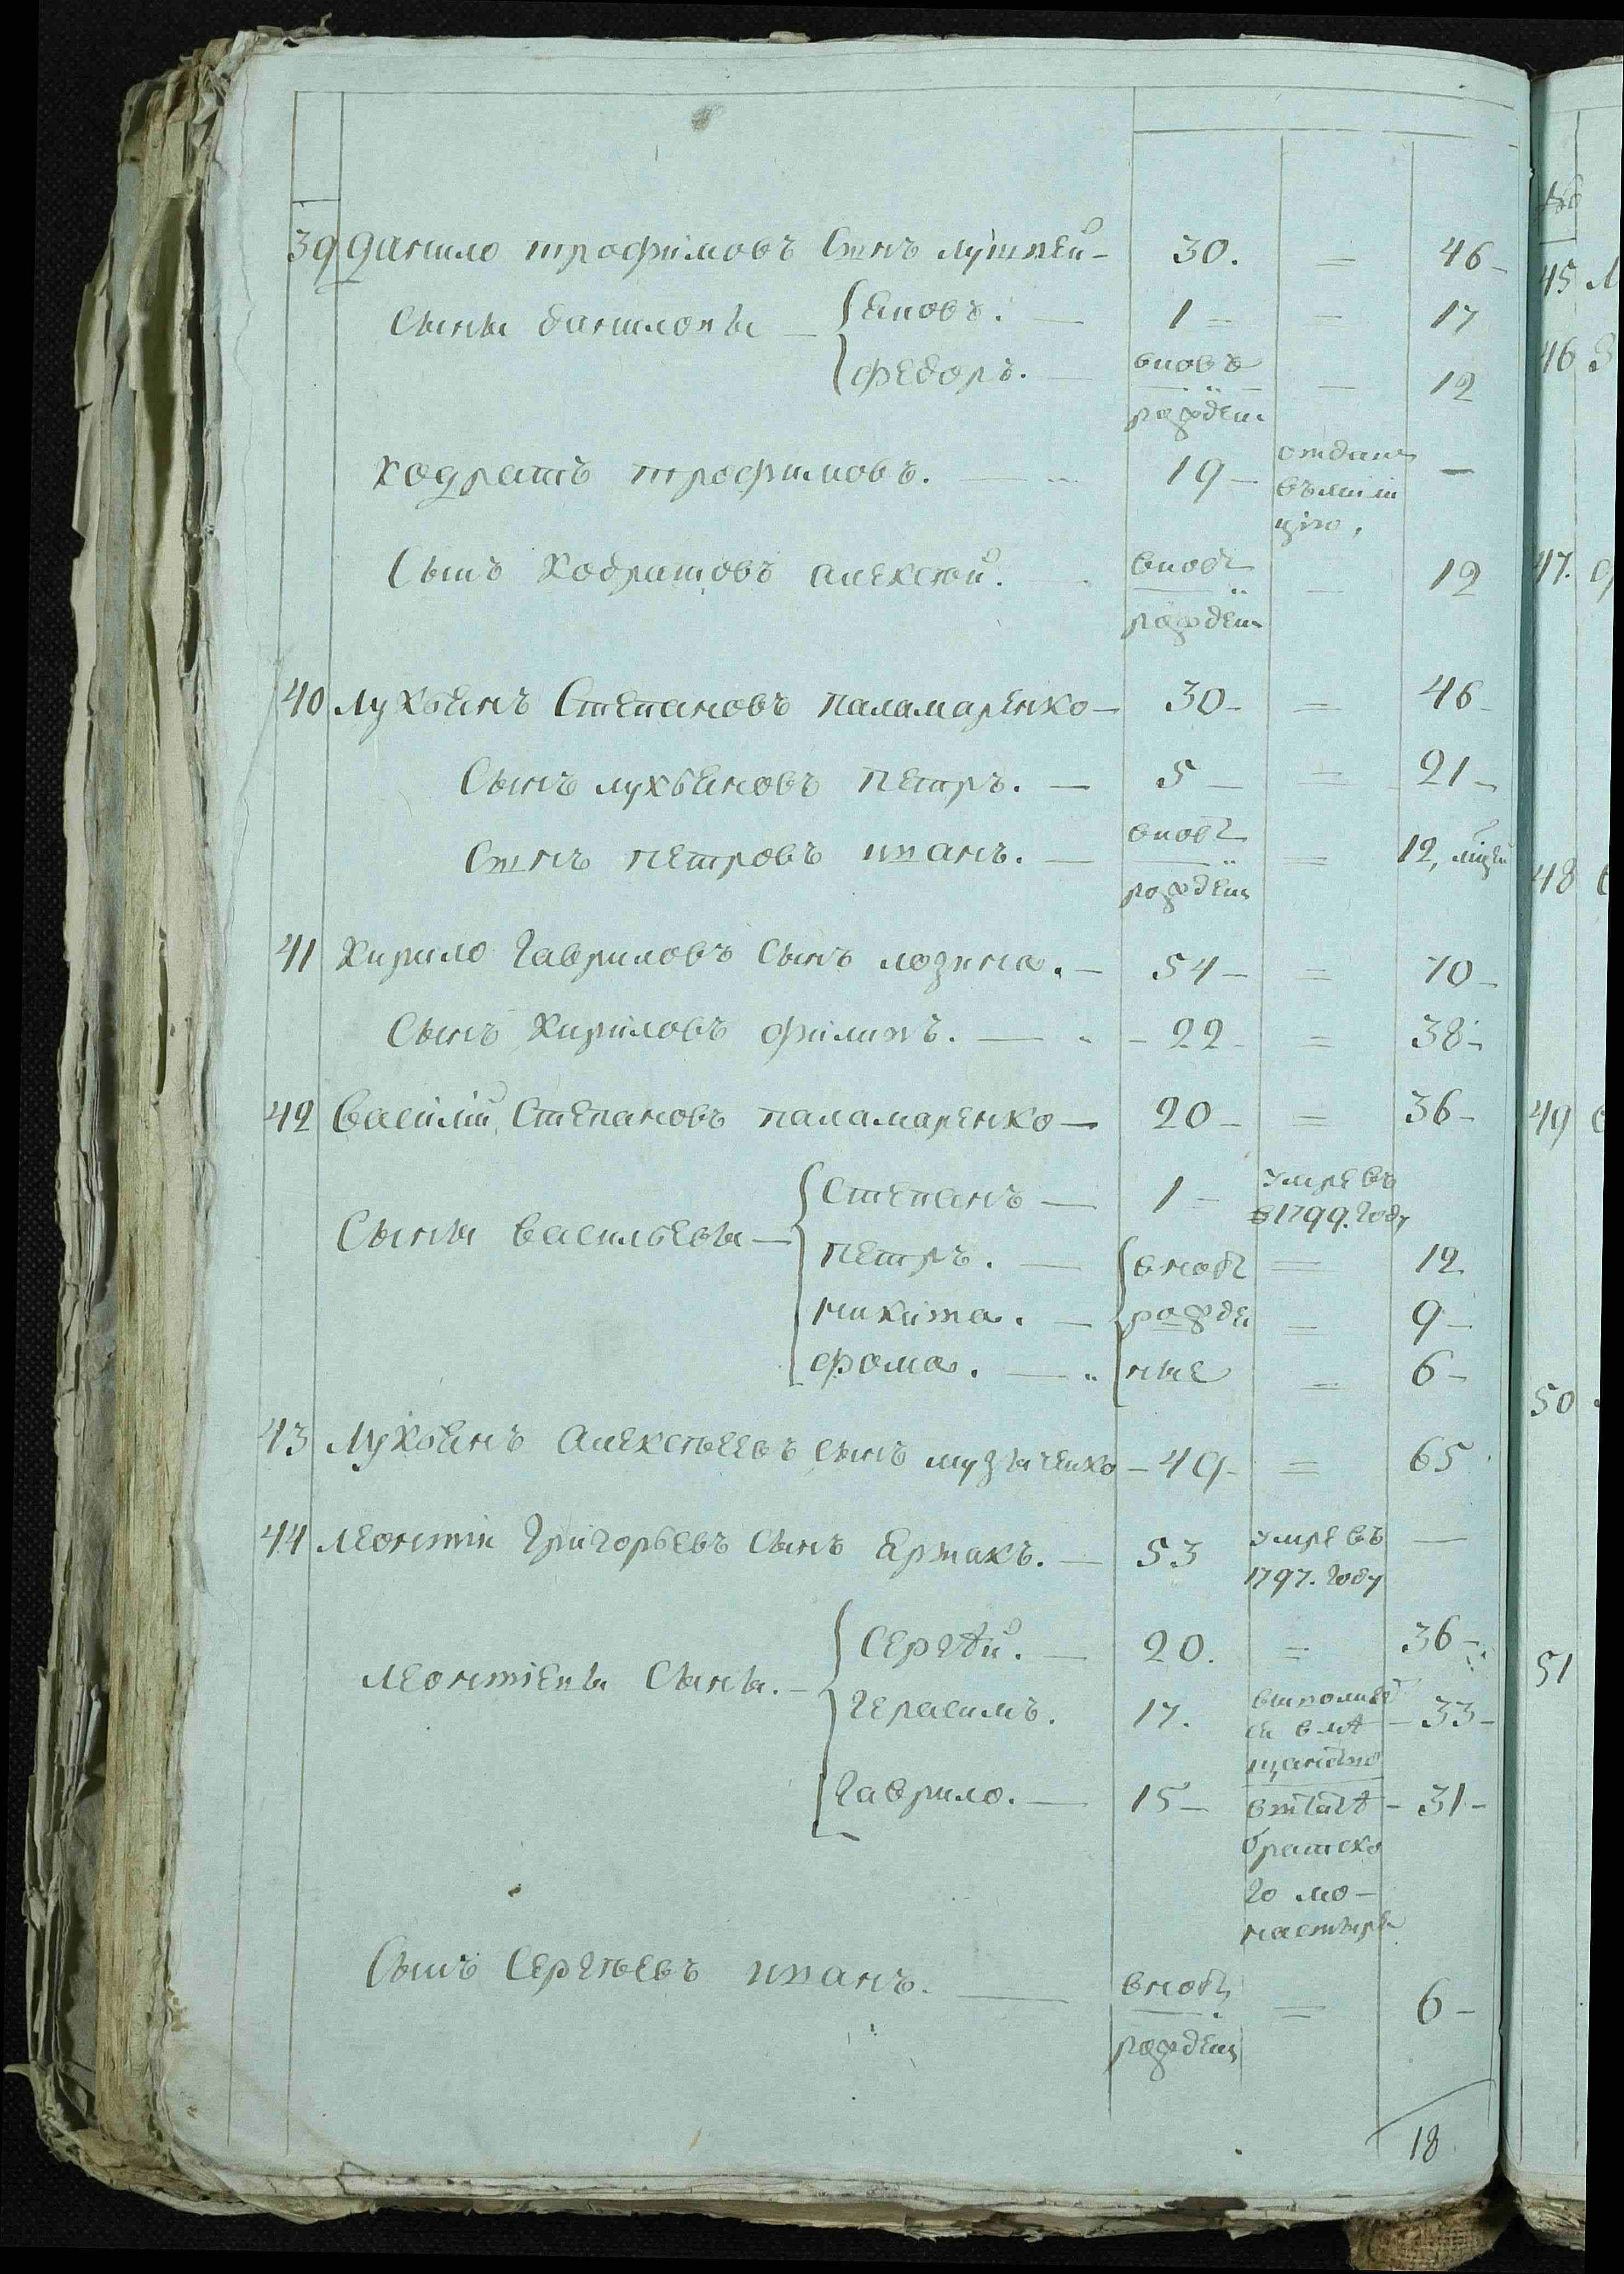 39 Данило трофимовъ Снъ лушпей - 30. = 46 -
Сыны даниловы - Яковъ. - 1 = - 17
федоръ. - вновъ рожден - 12
Кодратъ трофимовъ. - 19 - отданъ -
въмили
цію,
Сынъ Кодратовъ алексей. вновъ рожден - 12
40 лукьянъ Степановъ паламаренко - 30 - = 46 -
Сынъ лукьяновъ петръ. - 5 - = 21 -
Снъ петровъ иванъ. - вновъ рожден = 12,
41 Кирило Гавриловъ Сынъ лозина. - 54 - = 70 -
Сынъ Кириловъ филипъ. - 22 - = 38 -
42 Василій Степановъ паламаренко - 20 - = 36 -
Степанъ - 1 = умре въ
1799. году
Сыны васильевы - петръ. - вновъ = 12
никита. - рожде = 9 -
фома. - ные = 6 -
43 Лукьянъ Алексеевъ сынъ музыченко - 49 - = 65
44 леонтий Григорьевъ Сынъ Ермакъ. - 53 умре въ -
1797. году
Сергѣй. - 20. = 36 -
леонтіевы Сыны. -
Герасимъ. 17. - 33 -
ся в мѣ
щанство
Гаврило. - 15 - - 31 -
братско
го мо -
настыря
Сынъ Сергеевъ иванъ. - вновъ = 6 -
рожден
18
45
46
47.
48
49
50
51